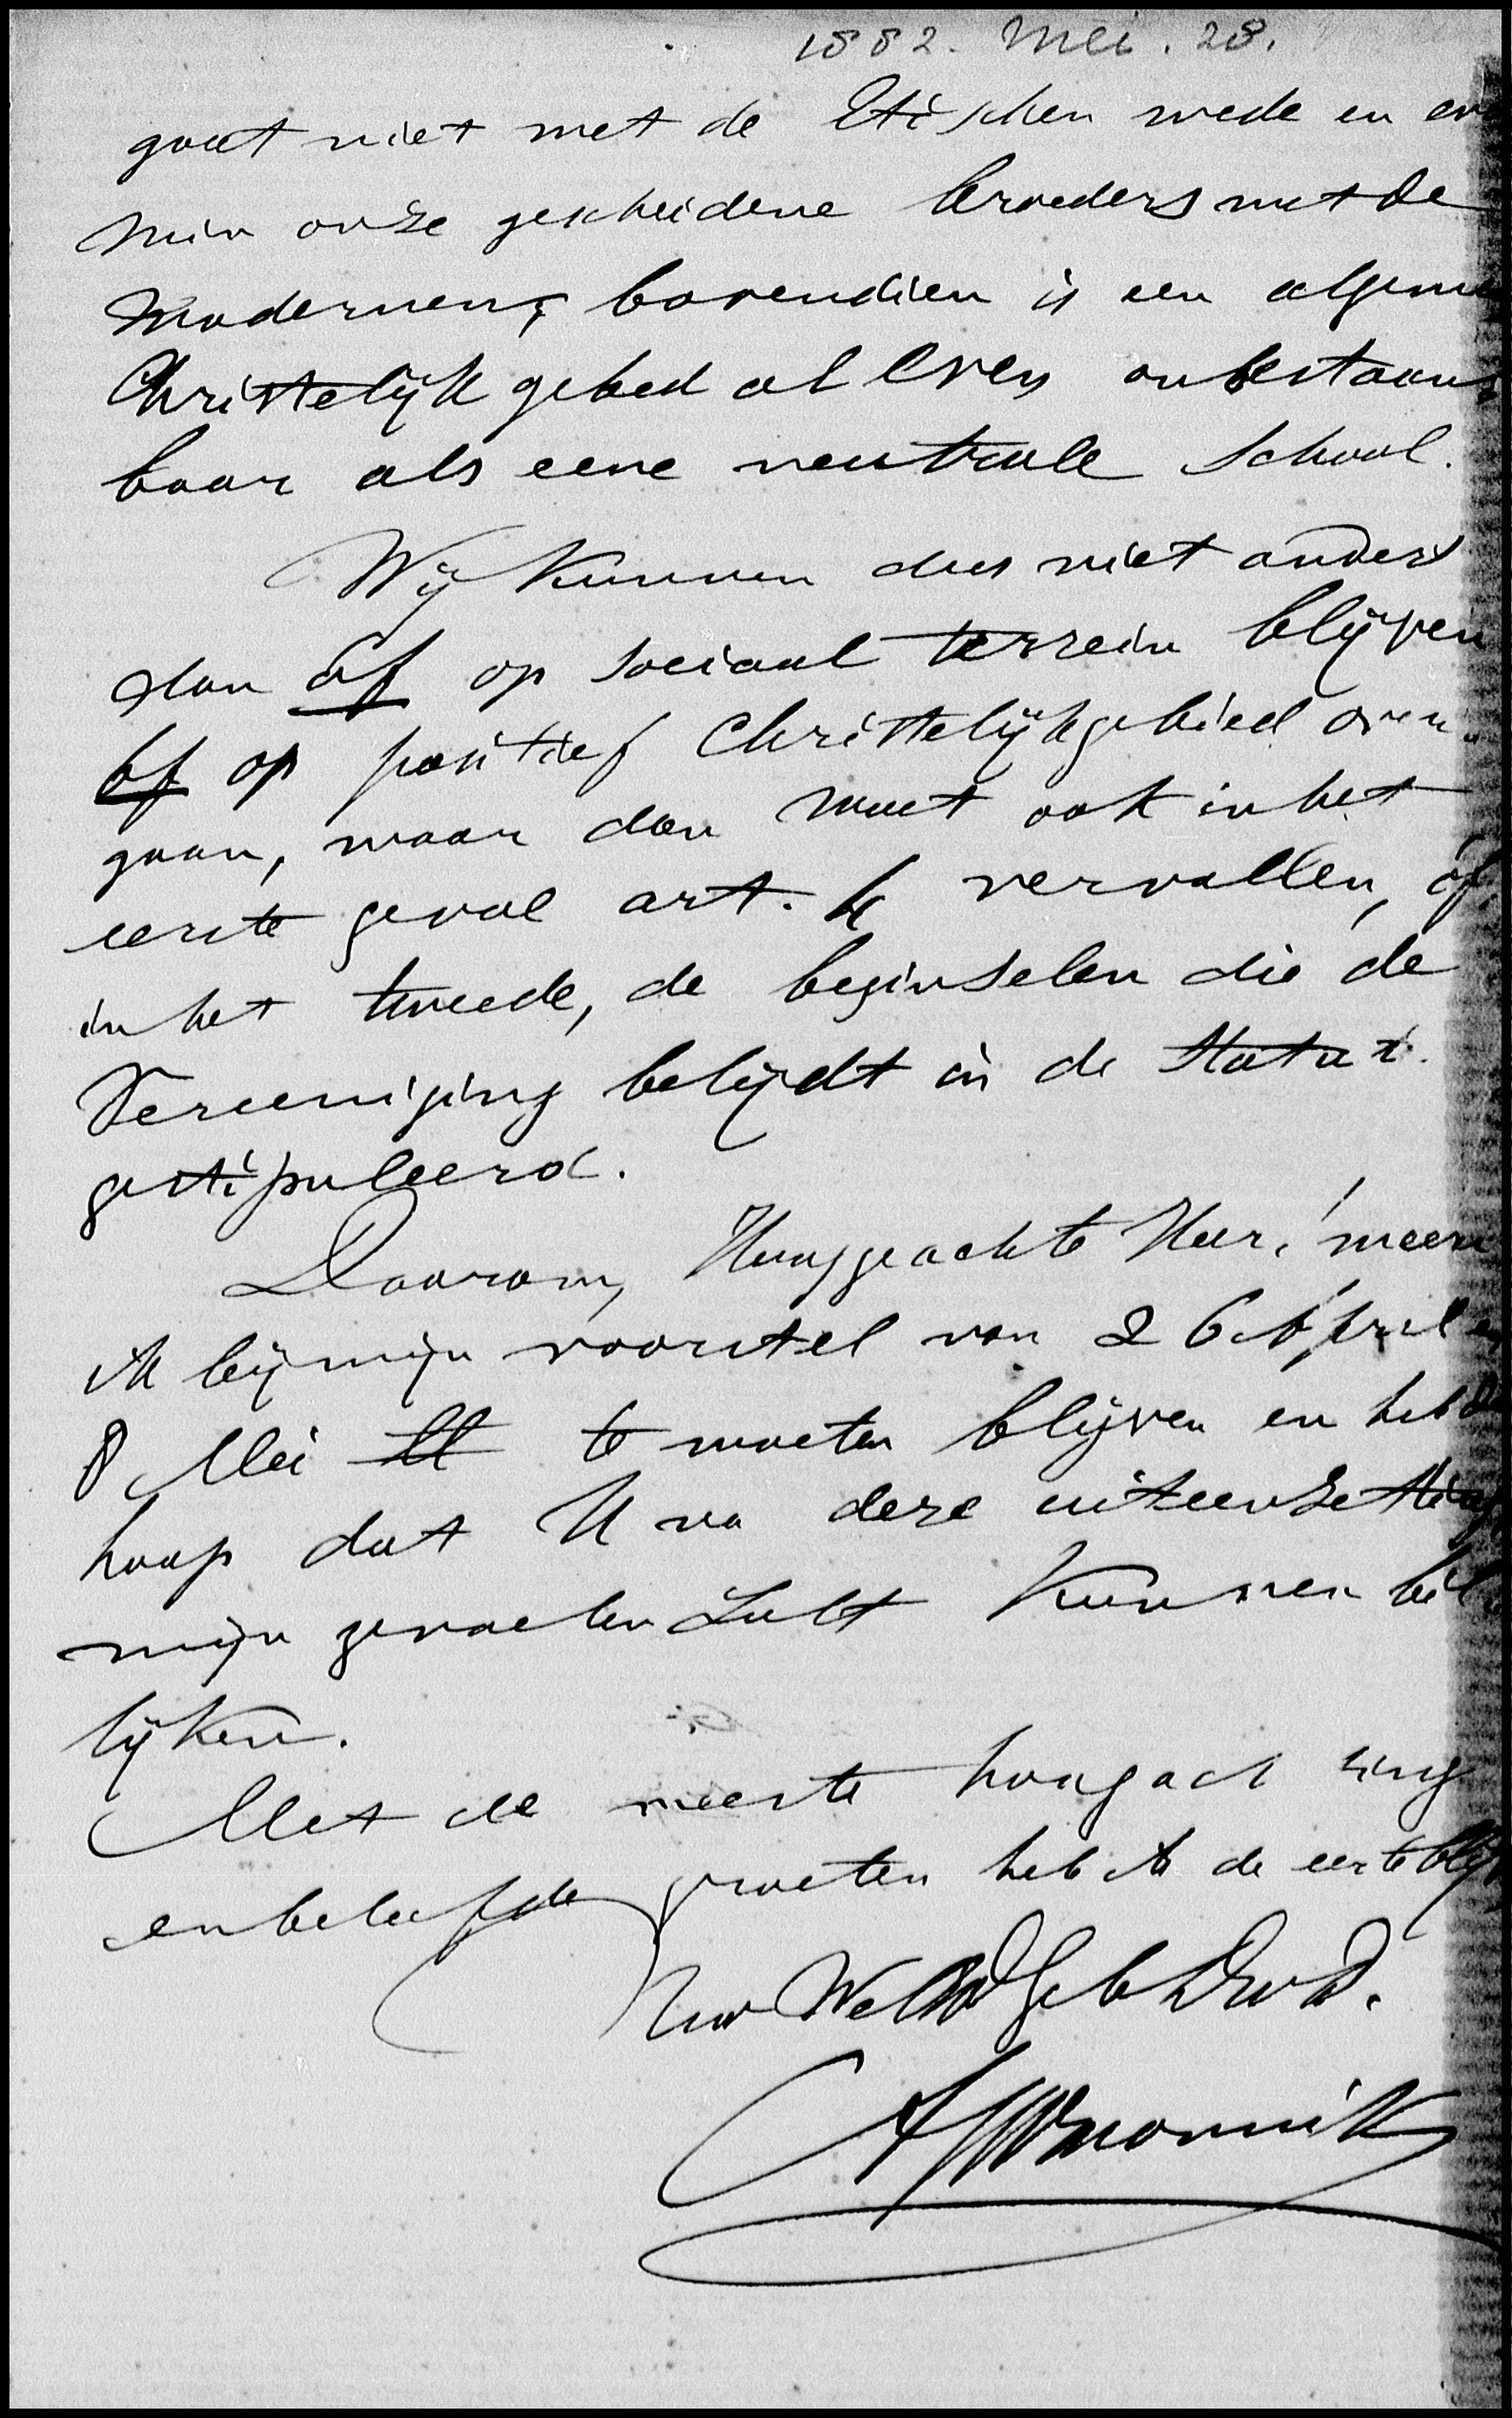 1882. Mei. 28.
gaat niet met de Etischen mede en ev
min onze gescheidene broeders met de
Modernen; bovendien is een algeme
Christelijk gebed al even onbestaan
baar als eene neutrale School.
Wij kunnen dus niet anders
dan óf op sociaal terrein blijven
óf op positief Christelijk gebied over
gaan, maar dan moet ook in het
eerste geval art. 4 vervallen, óf,
in het tweede, de beginselen die de
Vereeniging belijdt in de Statut.
gestipuleerd.
Daarom, Hooggeachte Heer! meen
ik bij mijn voorstel van 26 April en
8 Mei ll te moeten blijven en heb de
hoop dat U na deze uiteenzetting
mijn gevoelen zult kunnen bil
lijken.
Met de meeste hoogachting
en beleefde groeten heb ik de eer te blijv
Uw WelEdGeb Dw D.